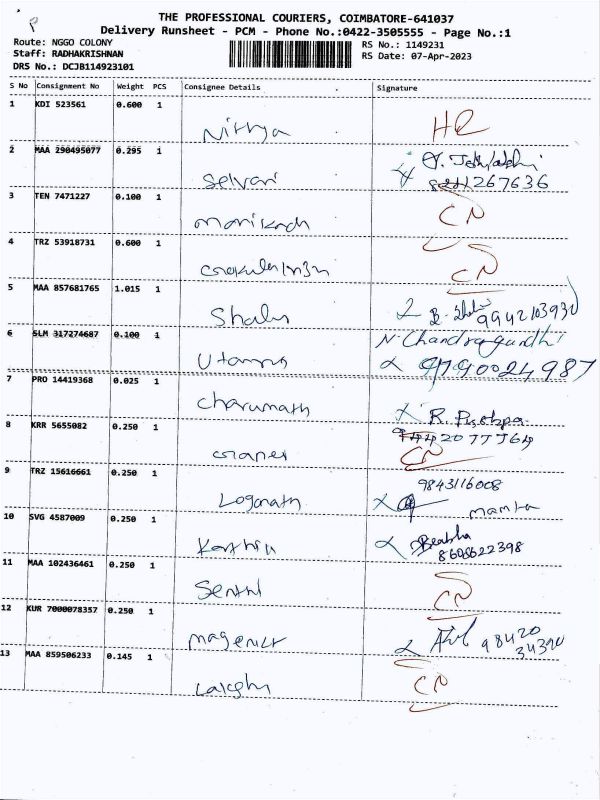 THE PROFESSIONAL COURIERS, COIMBATORE-641037
Delivery Runsheet - PCM - Phone No.:0422-3505555 - Page No.:1
Route: NGGO COLONY
Staff: RADHAKRISHNAN
DRS No.: DCJB114923101
RS No.: 1149231
RS Date: 07-Apr-2023
S No Consignment No Weight PCS Consignee Details Signature
1 KDI 523561 0.600 1
Nithya
2 MAA 290495077 0.295 1
Selvari 267636
3 TEN 7471227 0.100 1 CN
4 TRZ 53918731 0.600 1
CN
5 MAA 857681765 1.015 1
Shalu 9942103930
6 SLM 317274687 0.100 1 N. Chandragandhi
9790024987
7 PRO 14419368 0.025 1
Charumath R.
8 KRR 5655082 0.250 1
CN
9 TRZ 15616661 0.250 1 9843116008
Loganath mamta
10 SVG 4587009 0.250 1
Karthik 8608622398
11 MAA 102436461 0.250 1
Senthi CN
12 KUR 7000078357 0.250 1
98420
34390
13 MAA 859506233 0.145 1
CN